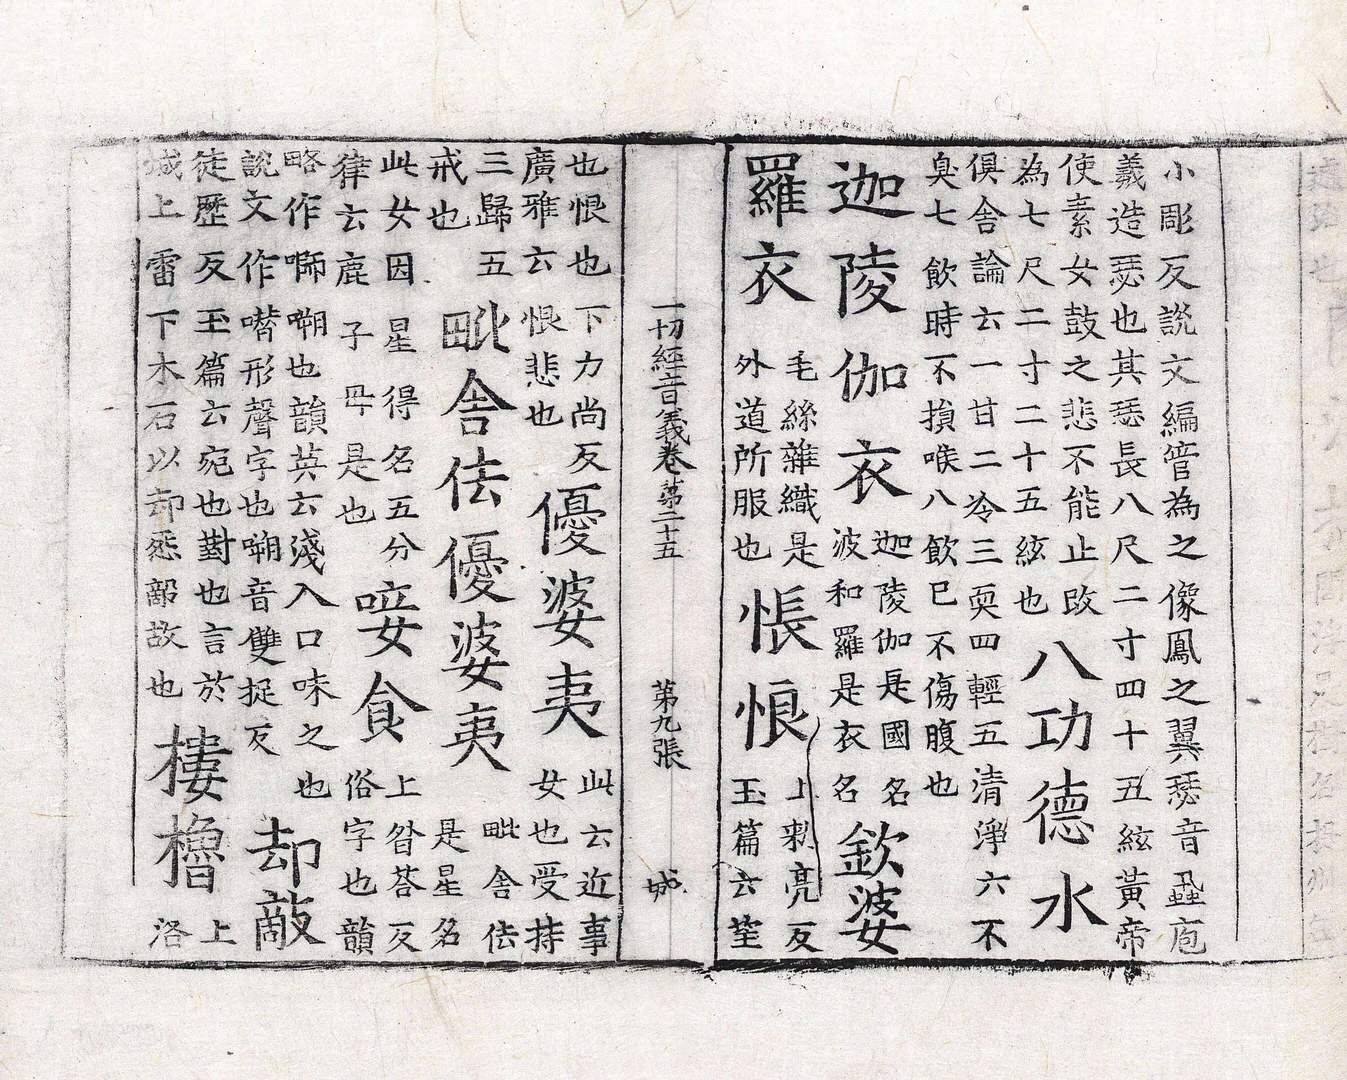 小彫反說文編管為之像鳳之翼瑟音蝨庖
羲造瑟也其瑟長八尺二寸四十五絃黃帝
使素女鼓之悲不能止改
為七尺二寸二十五絃也
八功德水
俱舍論云一甘二冷三耎四輕五清淨六不
臭七飲時不損喉八飲已不傷腹也
迦陵伽衣
迦陵伽是國名
波和羅是衣名
欽婆
羅衣
毛絲雜織是
外道所服也
悵悢
上敕亮反
玉篇云望
一切經音義卷第二十五
第九張
城
也恨也下力尚反
廣雅云悢悲也
優婆夷
此云近事
女也受持
三歸五
戒也
毗舍佉優婆夷
毗舍佉
是星名
此女因星得名五分
律云鹿子母是也
唼食
上咠荅反
俗字也韻
略作啑嗍也韻英云淺入口味之也
說文作噆形聲字也嗍音雙捉反
却敵
徒歷反玉篇云宛也對也言於
城上雷下木石以却怨敵故也
樓櫓
上
洛